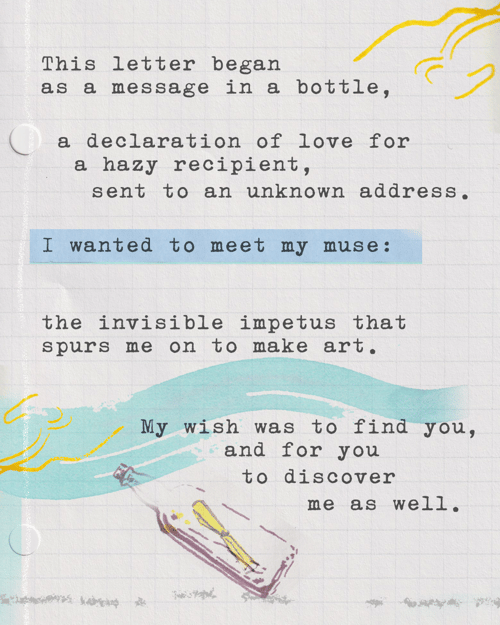 This letter began
as a message in a bottle,
a declaration of love for
a hazy recipient,
sent to an unknown address.
I wanted to meet my muse:
the invisible impetus that
spurs me on to make art.
My wish was to find you,
and for you
to discover
me as well.